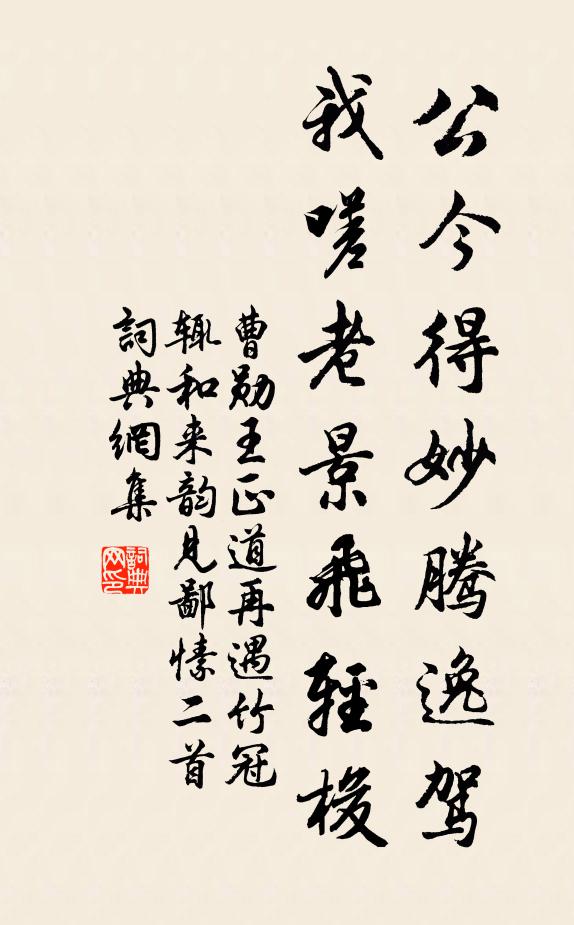 公今得妙腾逸驾
我嗟老景飛輕梭
曹勋王正道再遇竹冠
辄和来韵見鄙愫二首
詞典網集
詞典网印